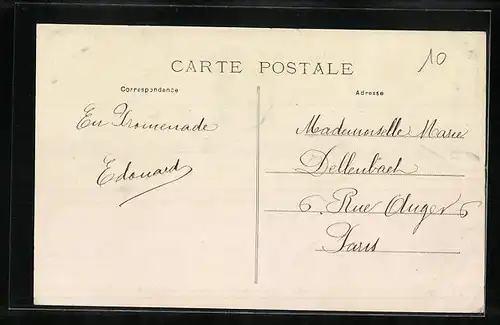 10
CARTE POSTALE
Correspondance
Adresse
En Promenade
Edouard
Mademoiselle Marie
Dellenbach
6. Rue Auger 6
Paris